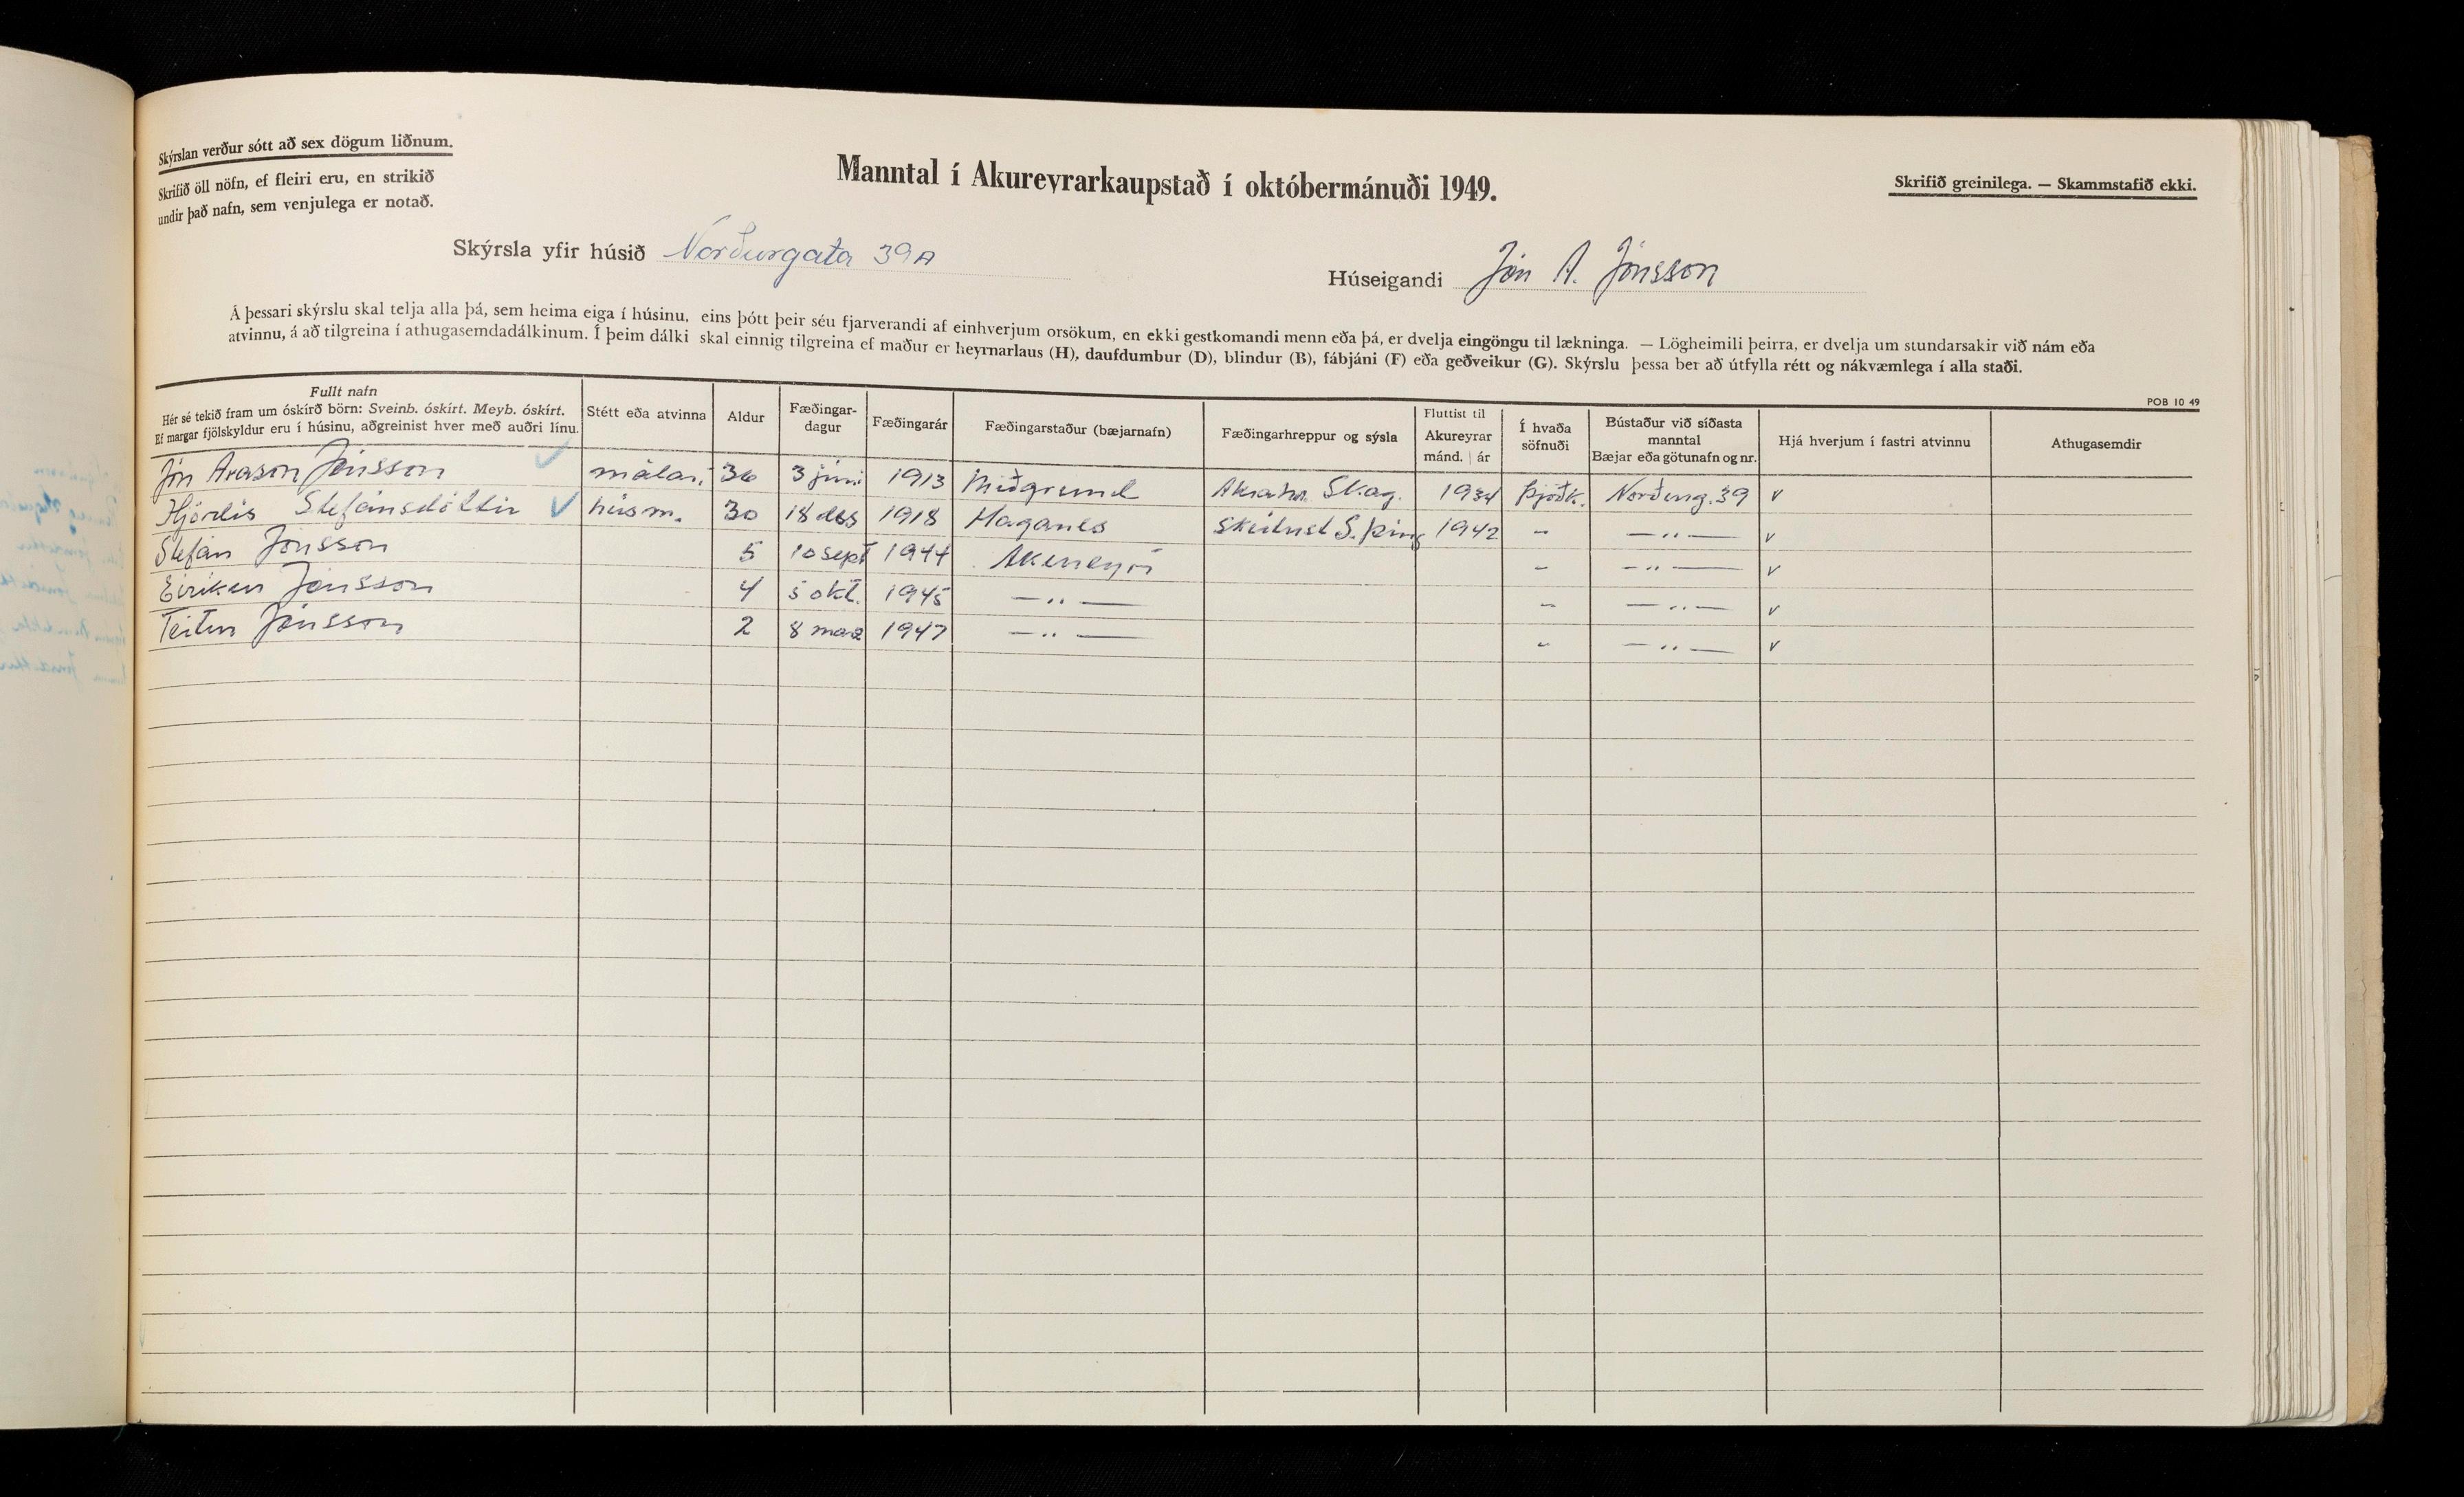 Skýrslan verður sótt að sex dögum liðnum.
Skrifið öll nöfn, ef fleiri eru, en strikið
undir það nafn, sem venjulega er notað.
Manntal í Akureyrarkaupstað í októbermánuði 1949.
Skrifið greinilega. — Skammstafið ekki.
Skýrsla yfir húsið Norðurgata 39A
Húseigandi Jón A. Jónsson
Á þessari skýrslu skal telja alla þá, sem heima eiga í húsinu, eins þótt þeir séu fjarverandi af einhverjum orsökum, en ekki gestkomandi menn eða þá, er dvelja eingöngu til lækninga. — Lögheimili þeirra, er dvelja um stundarsakir við nám eða
atvinnu, á að tilgreina í athugasemdadálkinum. Í þeim dálki skal einnig tilgreina ef maður er heyrnarlaus (H), daufdumbur (D), blindur (B), fábjáni (F) eða geðveikur (G). Skýrslu þessa ber að útfylla rétt og nákvæmlega í alla staði.
POB 10 49
Fullt nafn
Hér sé tekið fram um óskírð börn: Sveinb. óskírt. Meyb. óskírt.
Ef margar fjölskyldur eru í húsinu, aðgreinist hver með auðri línu.
Stétt eða atvinna
Aldur
Fæðingar-
dagur
Fæðingarár
Fæðingarstaður (bæjarnafn)
Fæðingarhreppur og sýsla
Fluttist til
Akureyrar
mánd. | ár
Í hvaða
söfnuði
Bústaður við síðasta
manntal
Bæjar eða götunafn og nr.
Hjá hverjum í fastri atvinnu
Athugasemdir
Jón Arason Jónsson ✓ málari 36 3 júni 1913 Miðgrund Akrahr. Skag. 1934 Þjóðk. Norðurg. 39 v
Hjördís Stefánsdóttir ✓ húsm. 30 18 des 1918 Haganes Skútust S. þing 1942 - — " — v
Stefán Jónsson 5 10 sept 1944 Akureyri - — " — v
Eiríkur Jónsson 4 5 okt. 1945 — " — - — " — v
Teitur Jónsson 2 8 maa 1947 — " — - — " — v